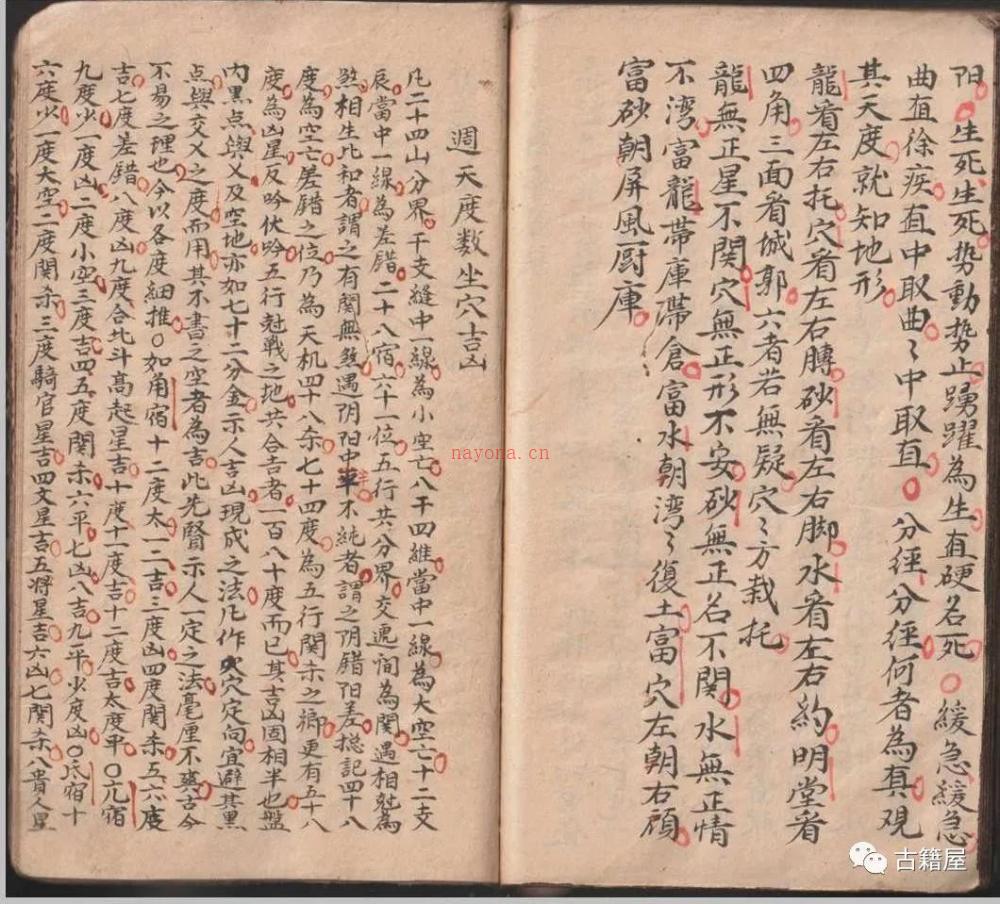 阳生死生死势動势止踴躍為生直硬名死〇緩急緩急
曲直徐疾直中取曲〻中取直〇分經分經何者為真覌
其天度就知地形
龍看左右托穴看左右膊砂看左右脚水看左右約明堂看
四角三面看城郭六者若無疑穴〻方栽托
龍無正星不関穴無正形不安砂無正名不関水無正情
不湾富龍帶庫帶倉富水朝湾〻復土富穴左朝右顧
富砂朝屏風厨庫
週天度数坐穴吉凶
凡二十四山分界干支縫中一線為小空亡八干四維當中一線為大空亡十二支
辰當中一線為差錯二十八宿六十一位五行共分界交逓间為関遇相尅為
煞相生比和者謂之有関無煞遇阴阳中半不純者謂之阴錯阳差揔記四十八
度為空亡差錯之位乃為天机四十八杀七十四度為五行関杀之鄉更有五十八
度為凶星反吟伏吟五行尅戰之地共合吉者一百八十度而已其吉凶固相半也盤
内黑点與乂及空地亦如七十二分金示人吉凶現成之法凡作穴定向宜避其黑
点與交乂之度而用其不書之空者為吉此先賢示人一定之法毫厘不爽古今
不易之理也今以各度細推〇如角宿十二度太一二吉三度凶四度関杀五六度
吉七度差錯八度凶九度合北斗高起星吉十度十一度吉十二度吉太度平〇亢宿
九度少一度凶二度小空三度吉四五度関杀六平七凶八吉九平少度凶〇氐宿十
六度少一度大空二度関杀三度騎官星吉四文星吉五将星吉六凶七関杀八貴人星
nayona.cn
古籍屋